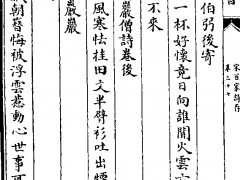 宋百家詩存
卷二十七
伯弜後寄
一杯好懷竟日向誰開火雲
不來
巖僧詩卷後
風寒怯挂旧文半臂衫吐出
巖巖
朝簪悔被浮雲惹動心世事